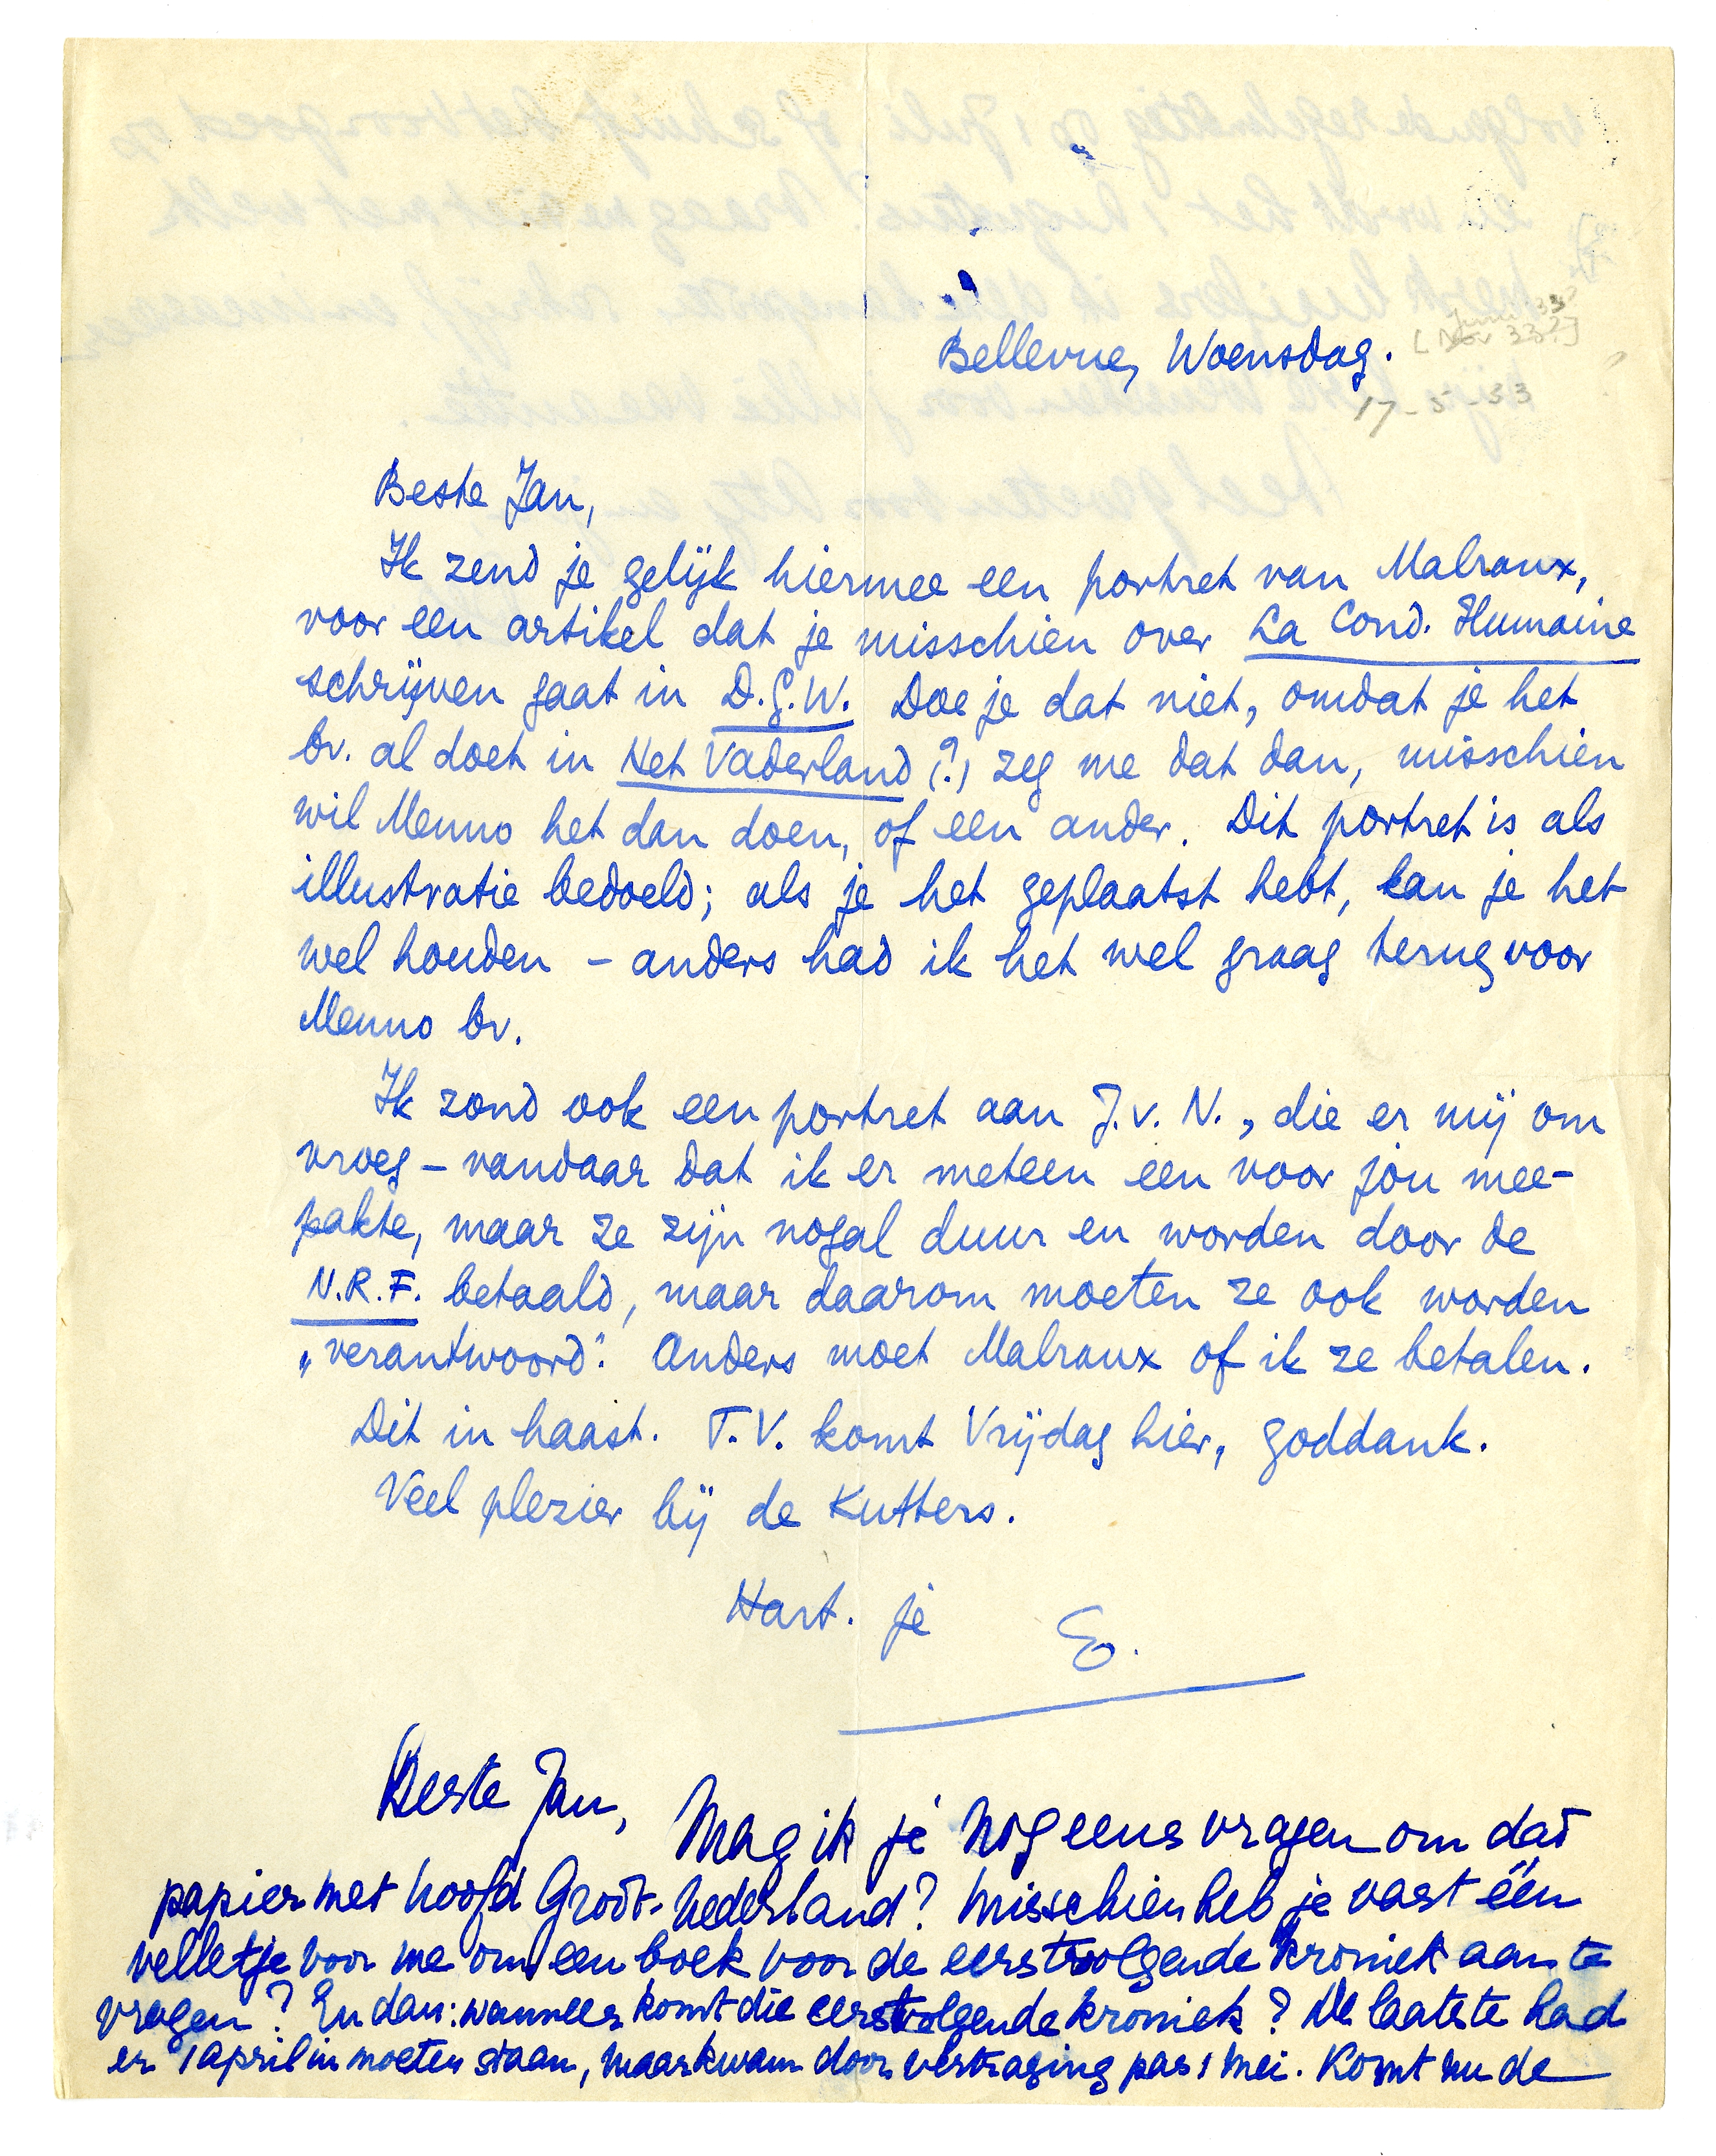 Bellevue, Woensdag.
17-5-33
Beste Jan,
Ik zend je gelijk hiermee een portret van Malraux,
voor een artikel dat je misschien over La Cond. Humaine
schrijven gaat in D.G.W. Doe je dat niet, omdat je het
bv. al doet in Het Vaderland (?) zeg me dat dan, misschien
wil Menno het dan doen, of een ander. Dit portret is als
illustratie bedoeld; als je het geplaatst hebt, kan je het
wel houden – anders had ik het wel graag terug voor
Menno bv.
Ik zond ook een portret aan J.v.N., die er mij om
vroeg – vandaar dat ik er meteen een voor jou mee-
pakte, maar ze zijn nogal duur en worden door de
N.R.F. betaald, maar daarom moeten ze ook worden
„verantwoord”. Anders moet Malraux of ik ze betalen.
Dit in haast. T.V. komt Vrijdag hier, goddank.
Veel plezier bij de Kutters.
Hart. je E.
Beste Jan, Mag ik je nog eens vragen om dat
papier met hoofd Groot-Nederland? Misschien heb je vast één
velletje voor me om een boek voor de eerstvolgende kroniek aan te
vragen? En dan: wanneer komt die eerstvolgende kroniek? De laatste had
er 1 april in moeten staan, maar kwam door vertraging pas 1 mei. Komt nu de